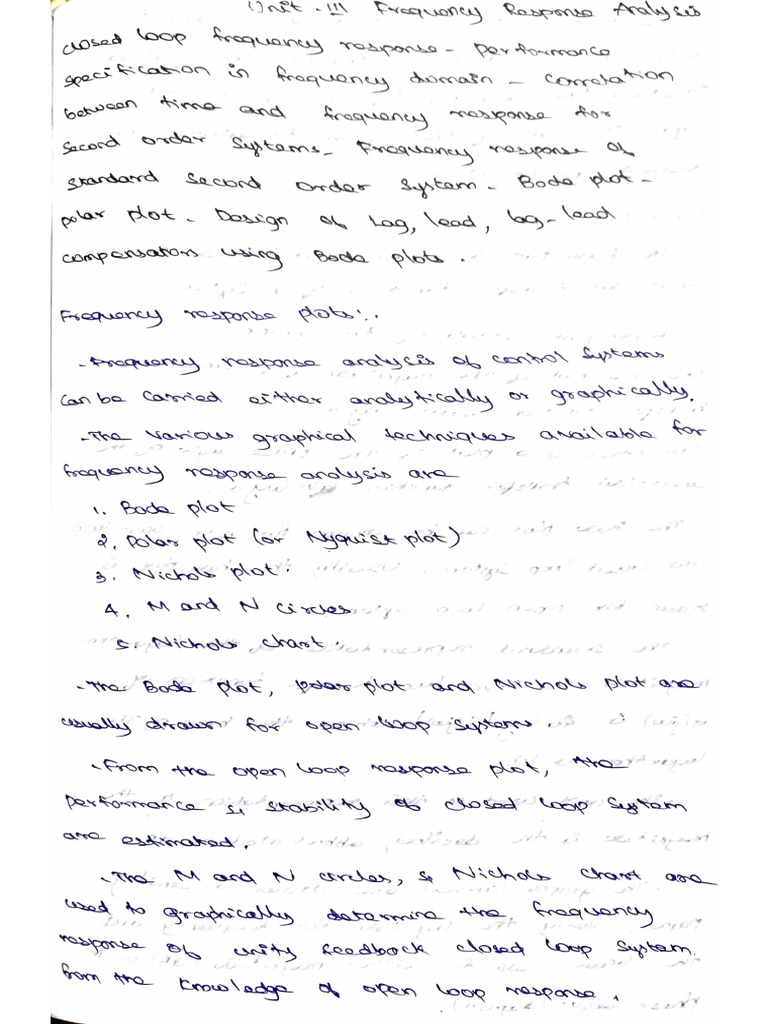 Unit - III Frequency Response Analysis
closed loop frequency response - performance
specification in frequency domain - correlation
between time and frequency response for
second order systems - Frequency response of
standard second order system - Bode plot -
polar plot - Design of lag, lead, lag-lead
compensators using Bode plots.
Frequency response plots:.
- Frequency response analysis of control systems
can be carried either analytically or graphically.
- The various graphical techniques available for
frequency response analysis are
1. Bode plot
2. Polar plot (or Nyquist plot)
3. Nichols plot.
4. M and N circles
5. Nichols chart.
- The Bode plot, polar plot and Nichols plot are
usually drawn for open loop systems.
- From the open loop response plot, the
performance & stability of closed loop system
are estimated.
- The M and N circles, & Nichols chart are
used to graphically determine the frequency
response of unity feedback closed loop system
from the knowledge of open loop response.